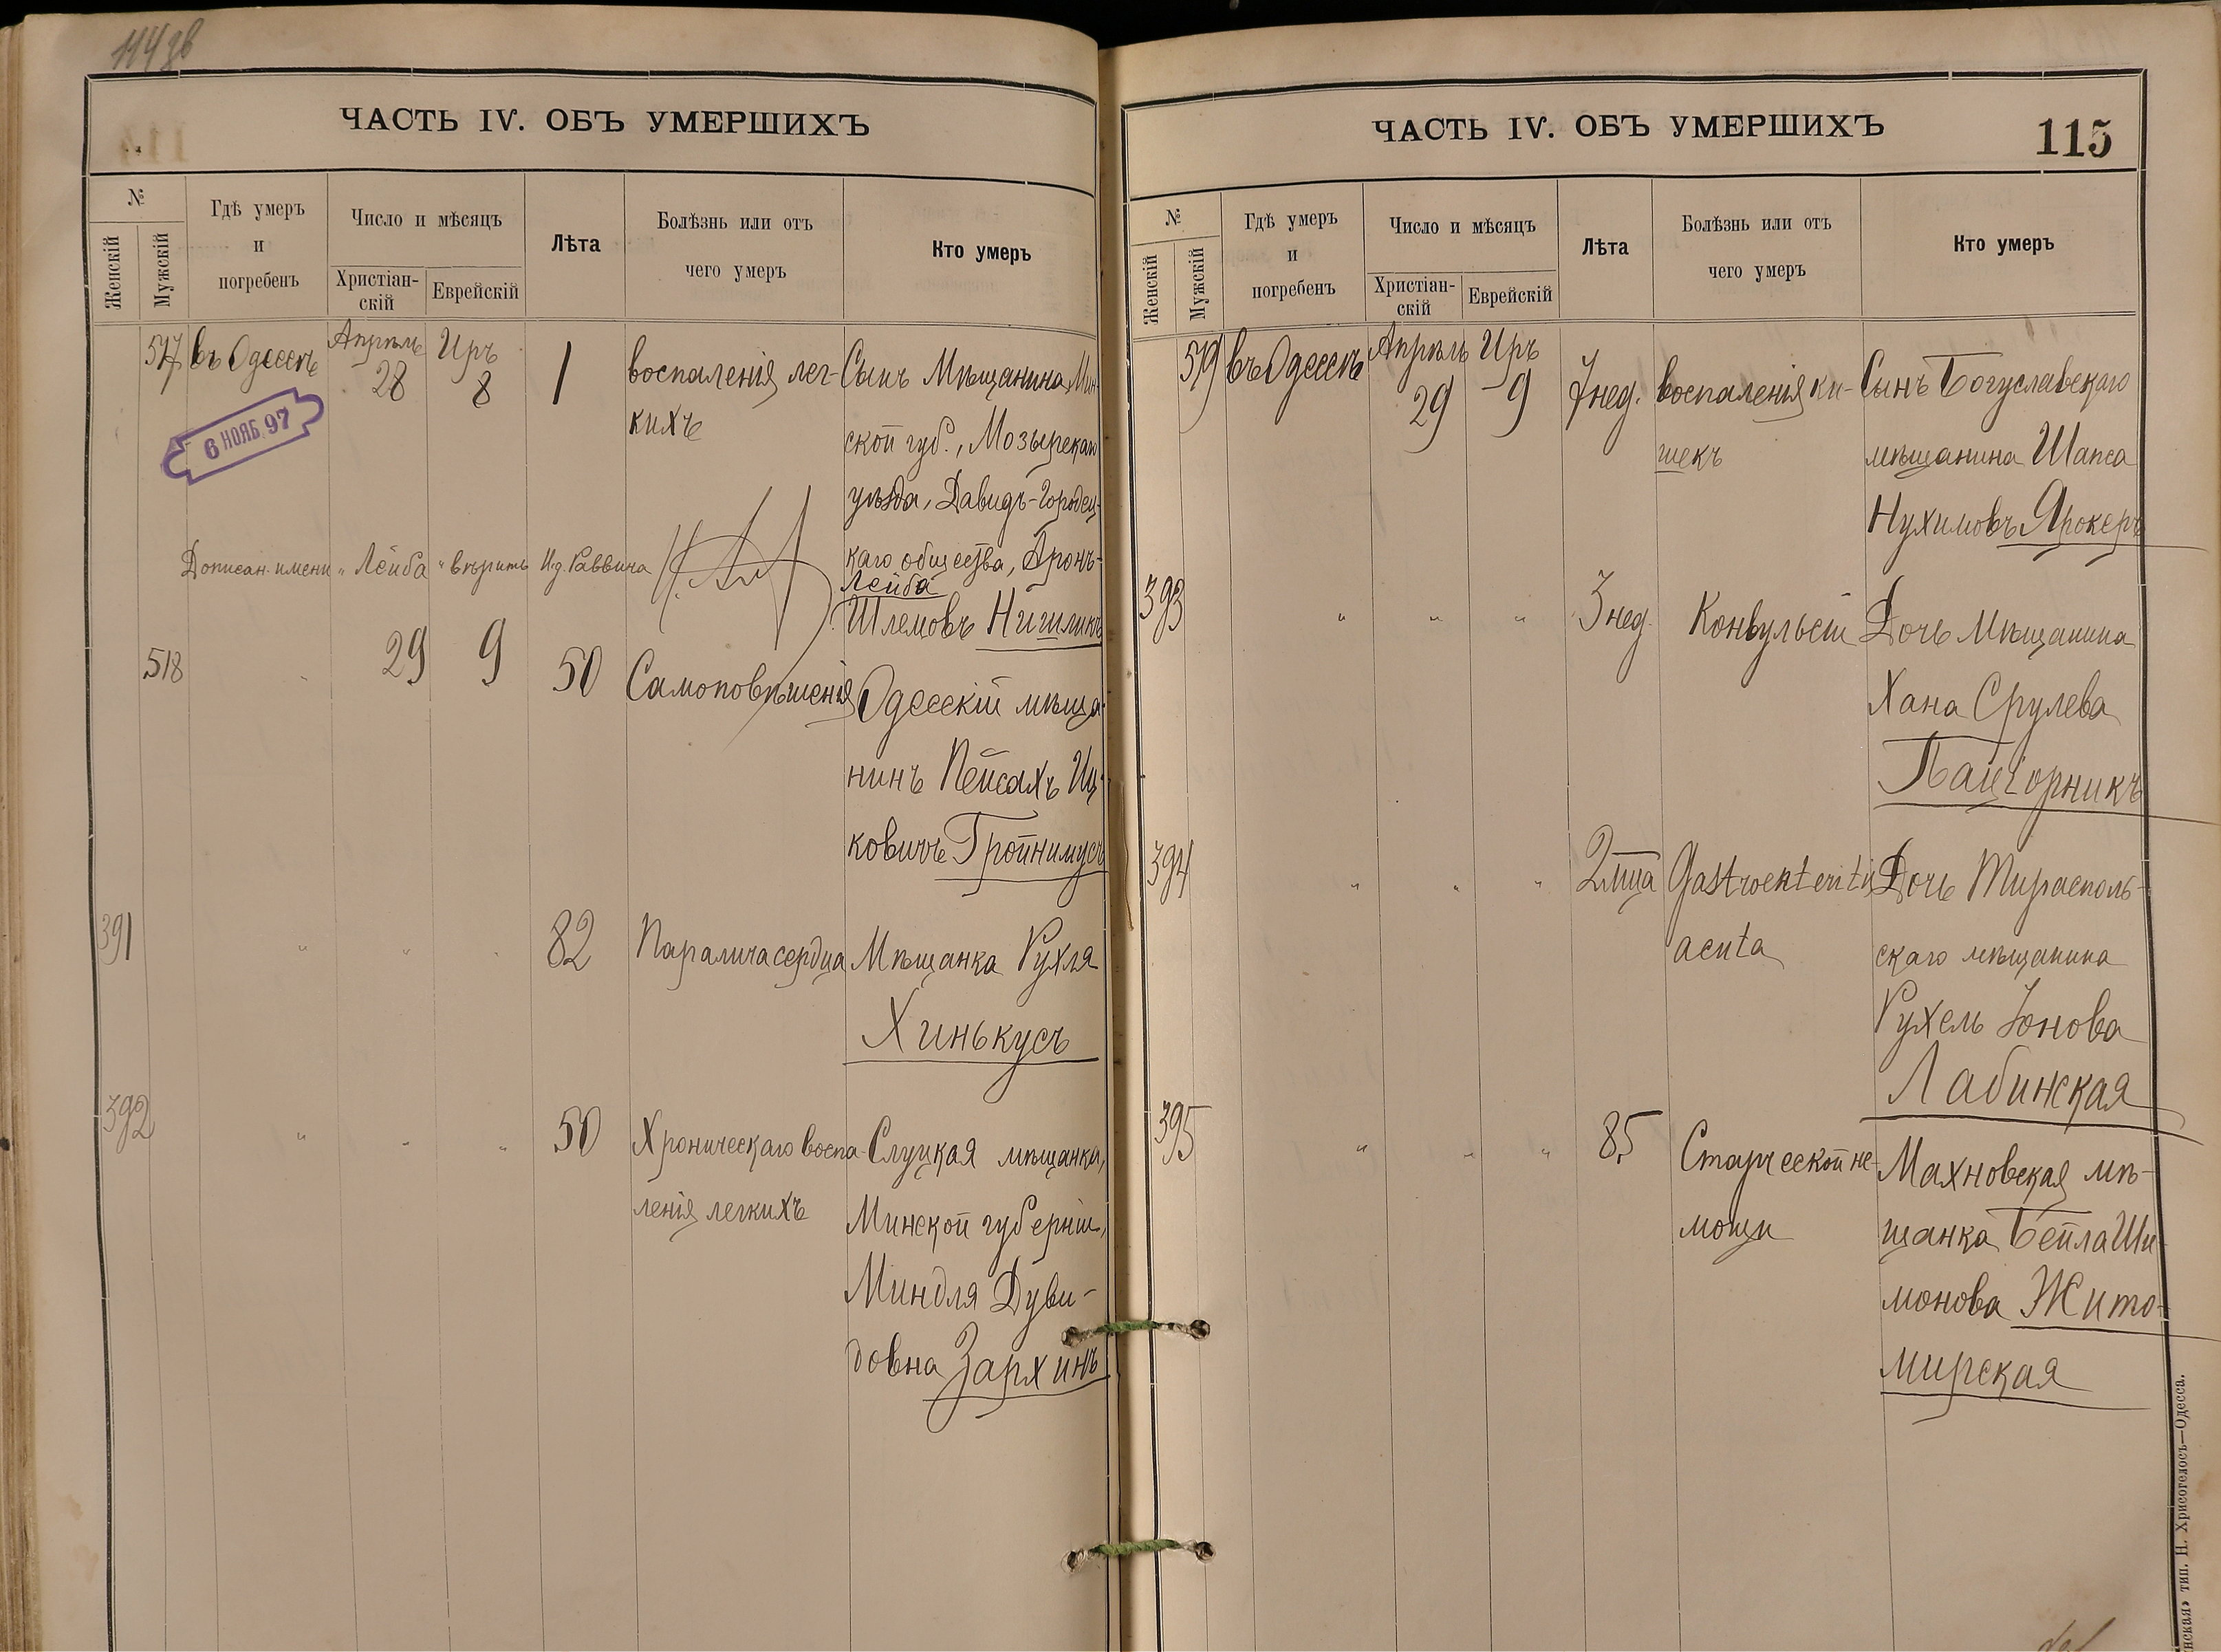 114 об
ЧАСТЬ IV. ОБЪ УМЕРШИХЪ
№
Женскій
Мужскій
Гдѣ умеръ
и
погребенъ
Число и мѣсяцъ
Христіан-
скій
Еврейскій
Лѣта
Болѣзнь или отъ
чего умеръ
Кто умеръ
517 въ Одессѣ Апрѣль 28 Иръ 8 1 воспаленія лег- Сынъ Мѣщанина Мин-
кихъ ской губ., Мозырскаго
6 НОЯБ. 97
уѣзда, Давидъ-Городец-
каго общества, Аронъ-
Дописан. имени „Лейба" вѣрить И.д. Раввина
Лейба
Шлемовъ Нишликъ
518 29 9 50 Самоповѣшенія Одесскій мѣща-
нинъ Пейсахъ Иц-
ковичъ Гройнимусъ
391 " " " 82 Паралича сердца Мѣщанка Рухля
Хинькусъ
392 " " " 50 Хроническаго воспа- Слуцкая мѣщанка,
ленія легкихъ Минской губерніи,
Миндля Дуви-
довна Зархинъ
ЧАСТЬ IV. ОБЪ УМЕРШИХЪ
115
№
Женскій
Мужскій
Гдѣ умеръ
и
погребенъ
Число и мѣсяцъ
Христіан-
скій
Еврейскій
Лѣта
Болѣзнь или отъ
чего умеръ
Кто умеръ
519 въ Одессѣ Апрѣль 29 Иръ 9 7 нед. воспаленія ки- Сынъ Богуславскаго
шекъ мѣщанина Шапса
Нухимовъ Ярокеръ
393 " " " 3 нед. Конвульсій Дочь Мѣщанина
Хана Срулева
Пайгорникъ
394 " " " 2 мца Gastroenteritis Дочь Тирасполь-
acuta скаго мѣщанина
Рухель Іонова
Лабинская
395 " " " 85 Старческой не- Махновская мѣ-
мощи щанка Бейла Ши-
монова Жито-
мирская
нская» тип. Н. Хрисогелосъ—Одесса.